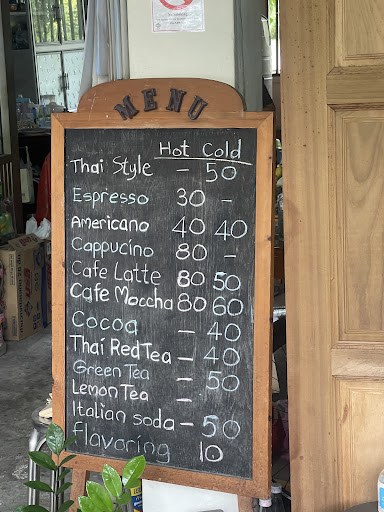 MENU
Hot Cold
Thai Style - 50
Espresso 30 -
Americano 40 40
Cappucino 80 -
Cafe Latte 80 50
Cafe Moccha 80 60
Cocoa - 40
Thai Red Tea - 40
Green Tea - 50
Lemon Tea -
Italian soda - 50
Flavoring 10